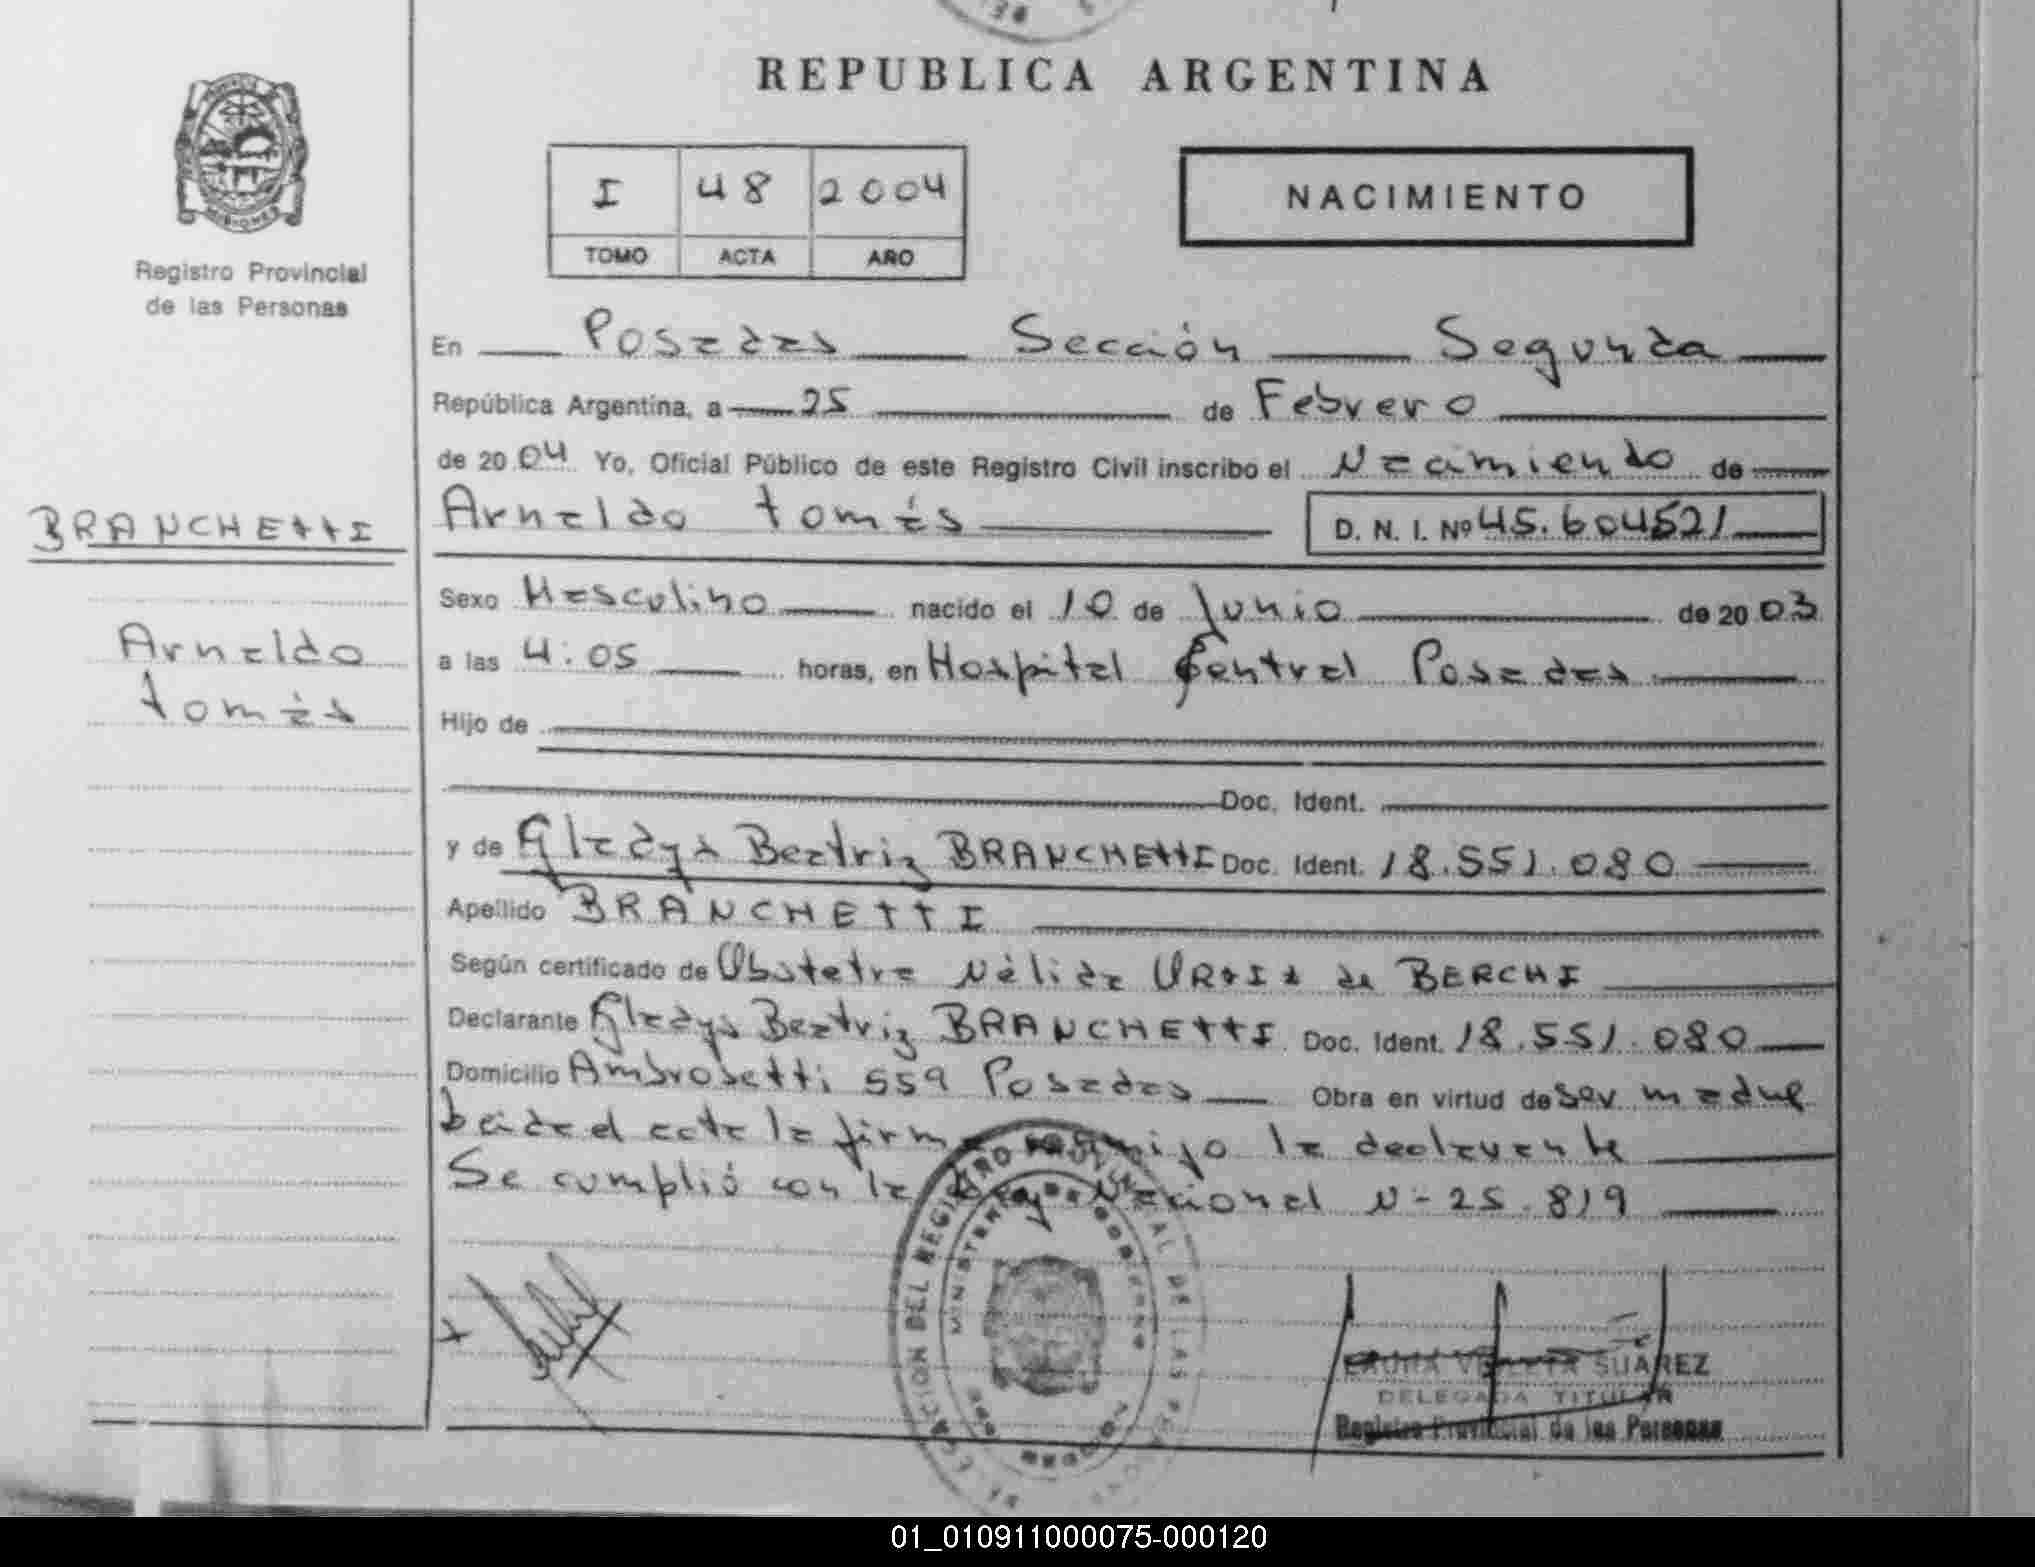 REPUBLICA ARGENTINA
MISIONES
Registro Provincial
de las Personas
I 48 2004
TOMO ACTA AÑO
NACIMIENTO
En Posadas Sección Segunda
República Argentina, a 25 de Febrero
de 2004 Yo, Oficial Público de este Registro Civil inscribo el Nacimiento de
BRANCHETTI
Arnaldo tomás D. N. I. Nº 45.604521
Sexo Masculino nacido el 10 de Junio de 2003
Arnaldo
tomás
a las 4:05 horas, en Hospital Central Posadas
Hijo de
Doc. Ident.
y de Gladys Beatriz BRANCHETTI Doc. Ident. 18.551.080
Apellido BRANCHETTI
Según certificado de Obstetra Nélida de BERCHI
Declarante Gladys Beatriz BRANCHETTI Doc. Ident. 18.551.080
Domicilio Ambrosetti 559 Posadas Obra en virtud de ser madre
el acta la firma conmigo la declarante
Se cumplió con la Ley Nacional N- 25.819
SUAREZ
DELEGADA TITULAR
Registro Provincial de las Personas
01_010911000075-000120